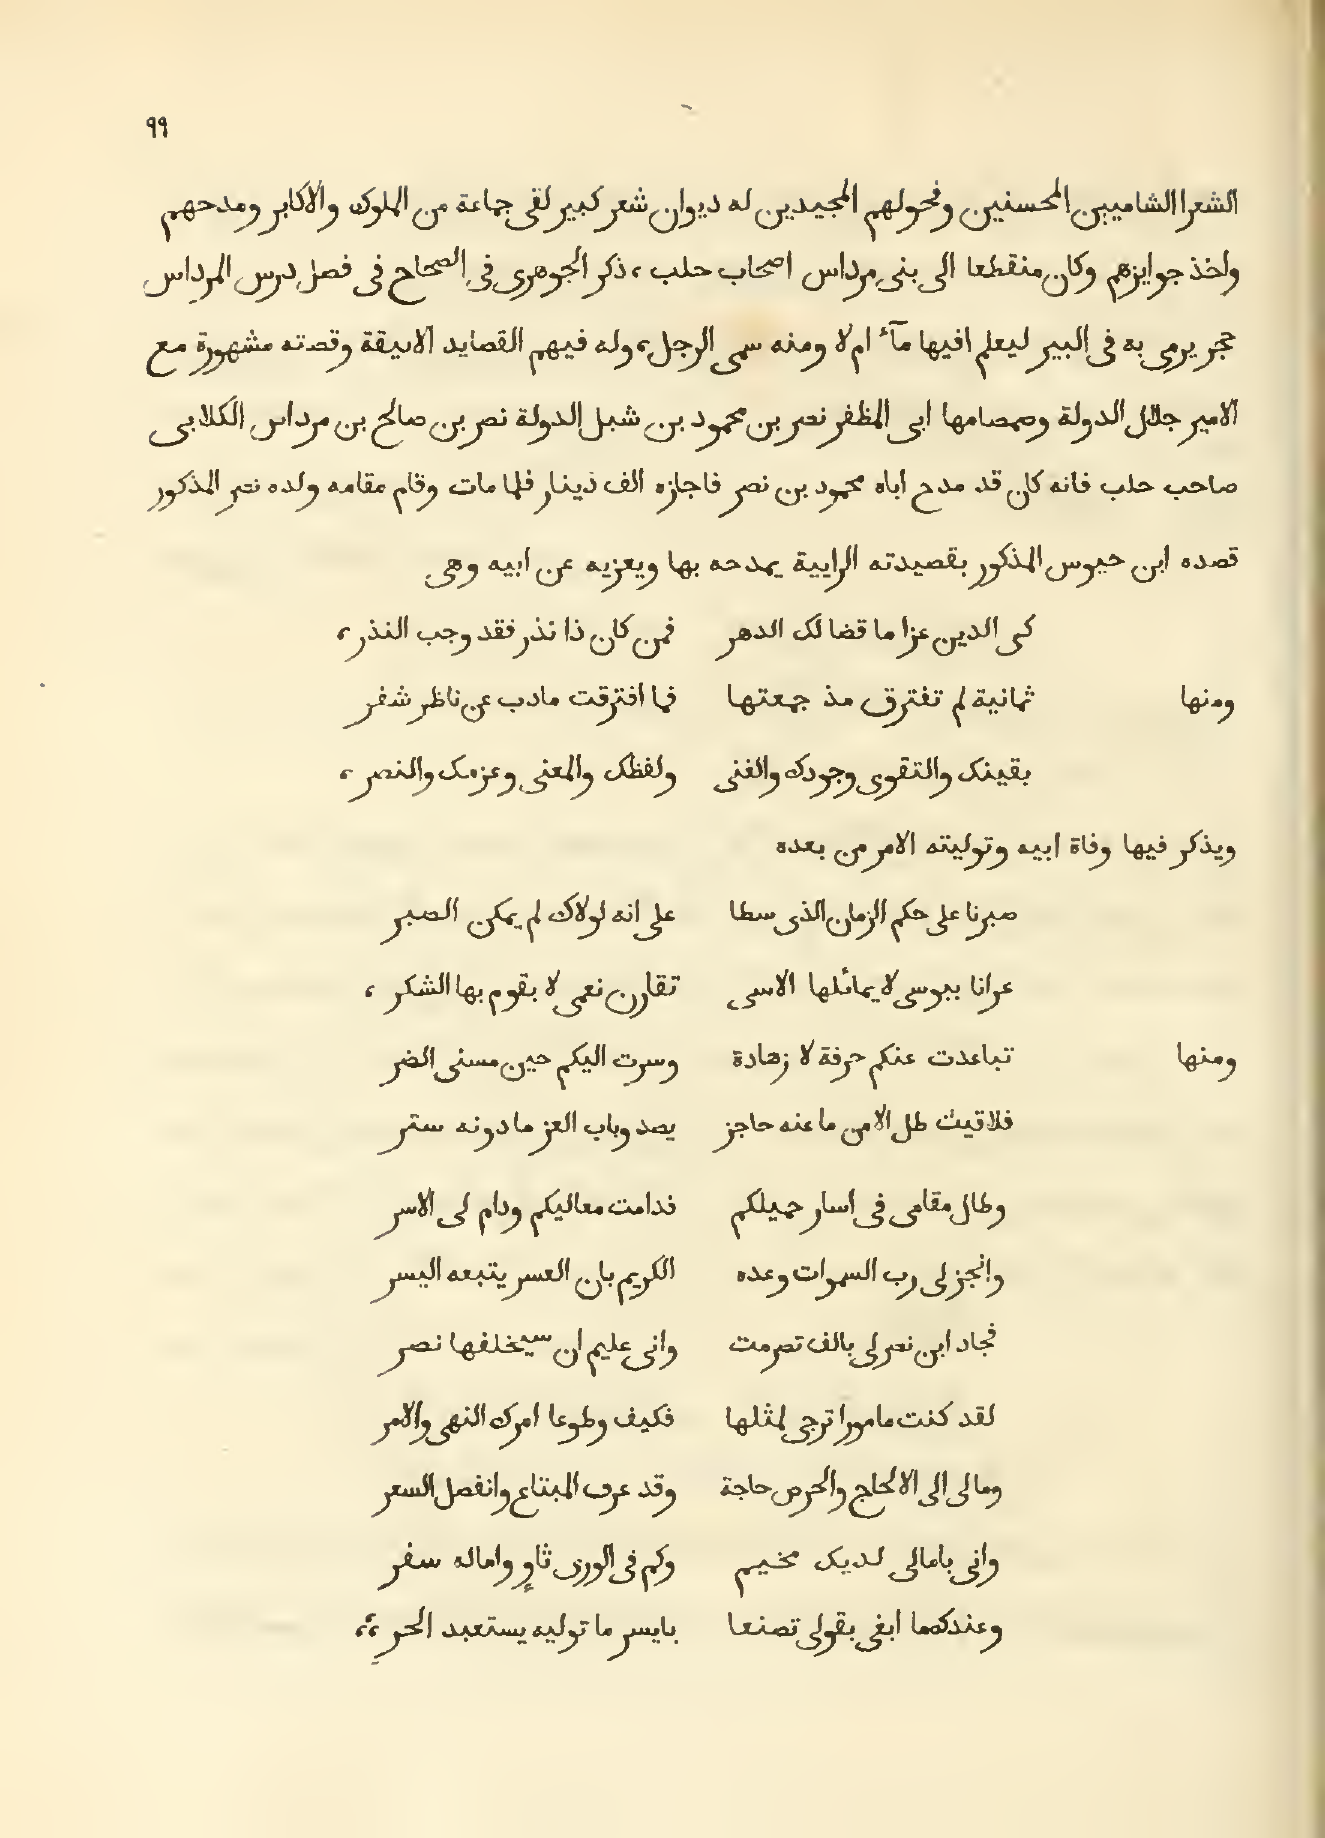 ٩٩
الشعرا الشاميين المحسنين وفحولهم المجيدين له ديوان شعر كبير لقى جماعة من الملوك والاكابر ومدحهم
واخذ جوايزهم وكان منقطعا الى بنى مرداس اصحاب حلب، ذكر الجوهرى فى الصحاح فى فصل درس المرداس
حجر يرمى به فى البير ليعلم افيها مآء ام لا ومنه سمى الرجل، وله فيهم القصايد الانيقة وقصته مشهورة مع
الامير جلال الدولة وصمصامها ابى المظفر نصر بن محمود بن شبل الدولة نصر بن صالح بن مرداس الكلابى
صاحب حلب فانه كان قد مدح اباه محمود بن نصر فاجازه الف دينار فلما مات وقام مقامه ولده نصر المذكور
قصده ابن حيوس المذكور بقصيدته الرايية يمدحه بها ويعزيه عن ابيه وهى
كى الدين عزا ما قضا لك الدهر فمن كان ذا نذر فقد وجب النذر،
ومنها ثمانية لم تفترق مذ جمعتها فما افترقت مادب عن ناظر شفر
بقينك والتقوى وجودك والغنى ولفظك والمعنى وعزمك والنصر،
ويذكر فيها وفاة ابيه وتوليته الامر من بعده
صبرنا على حكم الزمان الذى سطا على انه لولاك لم يمكن الصبر
عرانا ببوسى لا يماثلها الاسى تقارن نعمى لا بقوم بها الشكر،
ومنها تباعدت عنكم حرفة لا زهادة وسرت اليكم حين مسنى الضر
فلاقيت ظل الامن ما عنه حاجز يصد وباب العز ما دونه ستر
وطال مقامى فى اسار جميلكم فدامت معاليكم ودام لى الاسر
وانجز لى رب السموات وعده الكريم بان العسر يتبعه اليسر
فجاد ابن نصر لى بالف تصرمت وانى عليم ان سيخلفها نصر
لقد كنت مامورا ترجى لمثلها فكيف وطوعا امرك النهى والامر
ومالى الى الالحاح والحرص حاجة وقد عرف المبتاع وانفصل السعر
وانى بامالى لديك مخيم وكم فى الورى ثاوٍ واماله سفر
وعندك ما ابغى بقولى تصنعا بايسر ما توليه يستعبد الحر،،